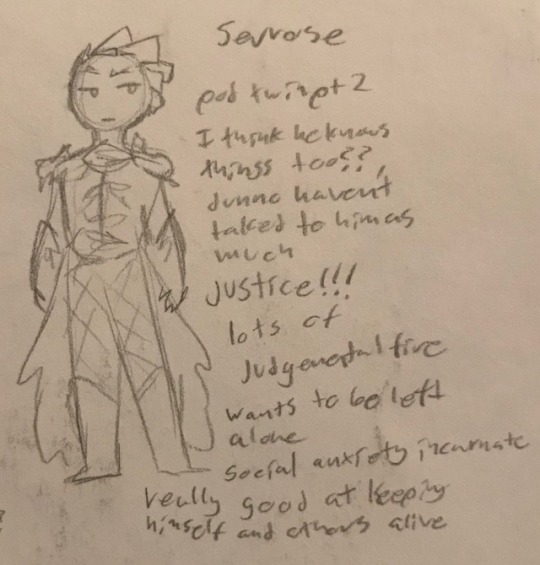 Sevrose
pod twin pt 2
I think he knows
things too??,
dunno havent
talked to him as
much
justice!!!
lots of
judgemental fire
wants to be left
alone
social anxiety incarnate
really good at keeping
himself and others alive